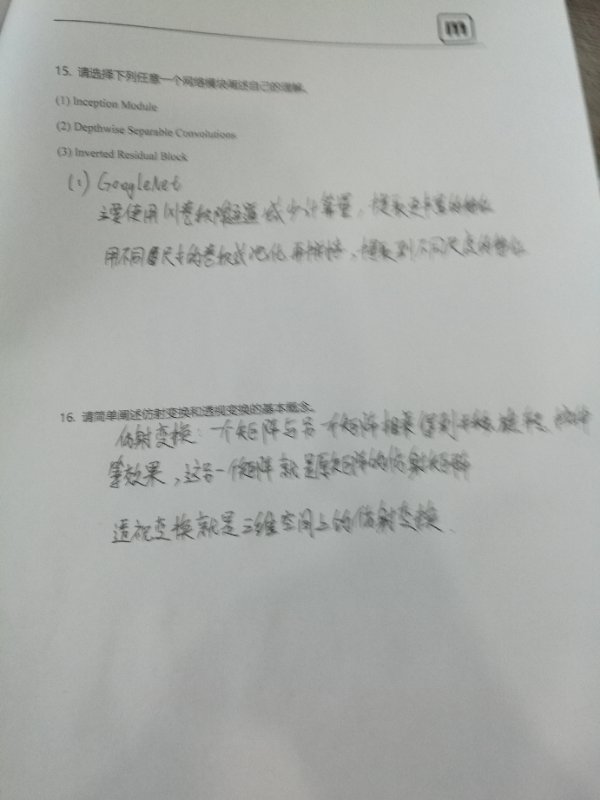 m
15. 请选择下列任意一个网络模块阐述自己的理解。
(1) Inception Module
(2) Depthwise Separable Convolutions
(3) Inverted Residual Block
(1) GoogleNet
主要使用1×1卷积降通道减少计算量，提取更丰富的特征
用不同尺寸的卷积或池化再拼接，提取到不同尺度的特征
16. 请简单阐述仿射变换和透视变换的基本概念。
仿射变换：一个矩阵与另一个矩阵相乘得到平移、旋转、
等效果，这另一个矩阵就是原矩阵的仿射矩阵
透视变换就是三维空间上的仿射变换.